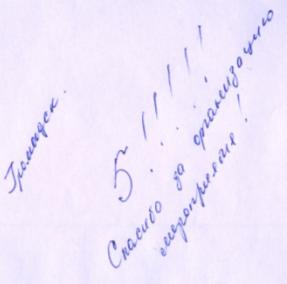 5!!!!!
Спасибо за организацию
мероприятия!